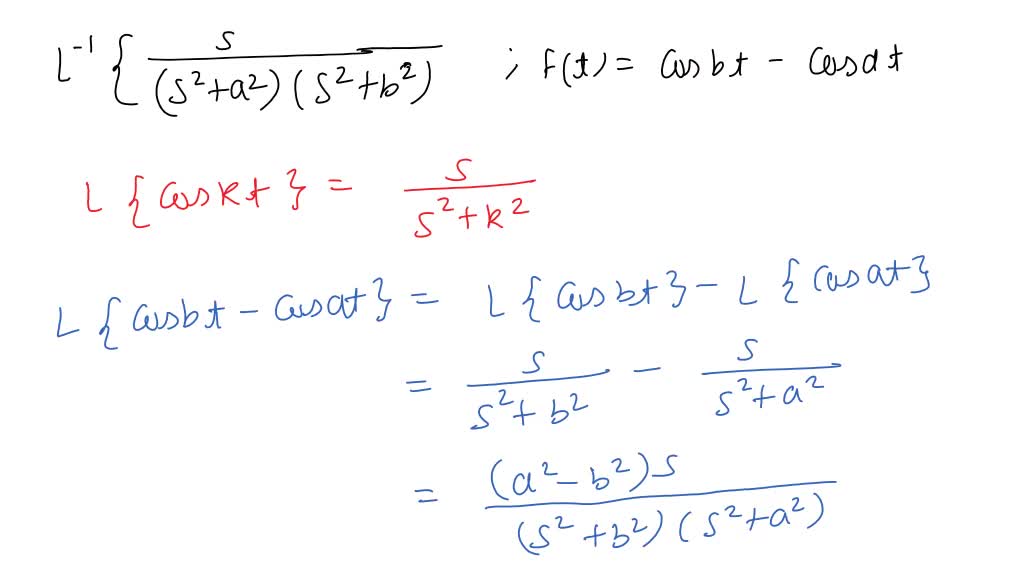 L⁻¹ { s / (s²+a²)(s²+b²) ; f(t) = cos bt − cos at
L {cos kt} = s / s²+k²
L {cos bt − cos at} = L {cos bt} − L {cos at}
= s / s²+b² − s / s²+a²
= (a²−b²)s / (s²+b²)(s²+a²)